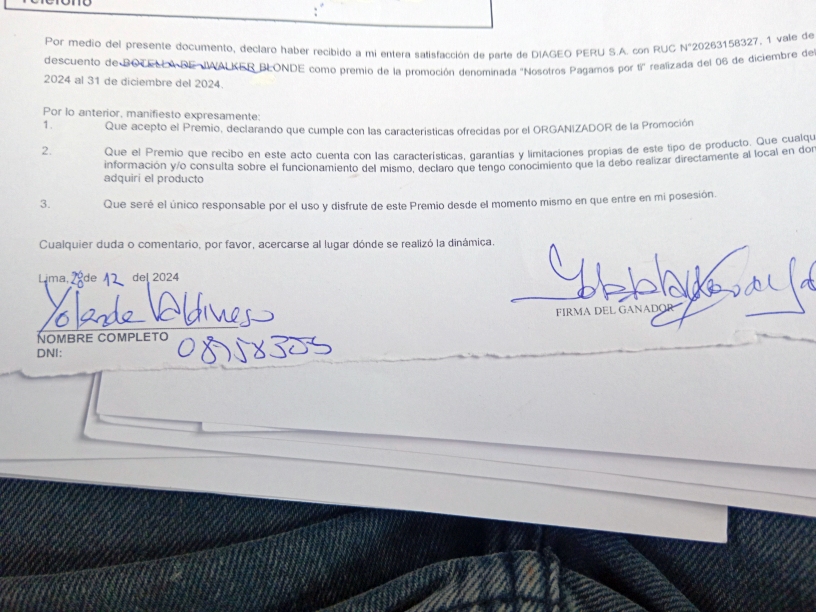 Por medio del presente documento, declaro haber recibido a mi entera satisfacción de parte de DIAGEO PERU S.A. con RUC N°20263158327, 1 vale de
descuento de BOTELLA DE JWALKER BLONDE como premio de la promoción denominada "Nosotros Pagamos por ti" realizada del 06 de diciembre del
2024 al 31 de diciembre del 2024.
Por lo anterior, manifiesto expresamente:
1. Que acepto el Premio, declarando que cumple con las caracteristicas ofrecidas por el ORGANIZADOR de la Promoción
2. Que el Premio que recibo en este acto cuenta con las características, garantias y limitaciones propias de este tipo de producto. Que cualqu
información y/o consulta sobre el funcionamiento del mismo, declaro que tengo conocimiento que la debo realizar directamente al local en don
adquirí el producto
3. Que seré el único responsable por el uso y disfrute de este Premio desde el momento mismo en que entre en mi posesión.
Cualquier duda o comentario, por favor, acercarse al lugar dónde se realizó la dinámica.
Lima, de 12 del 2024
Yolanda
FIRMA DEL GANADOR
NOMBRE COMPLETO
DNI: